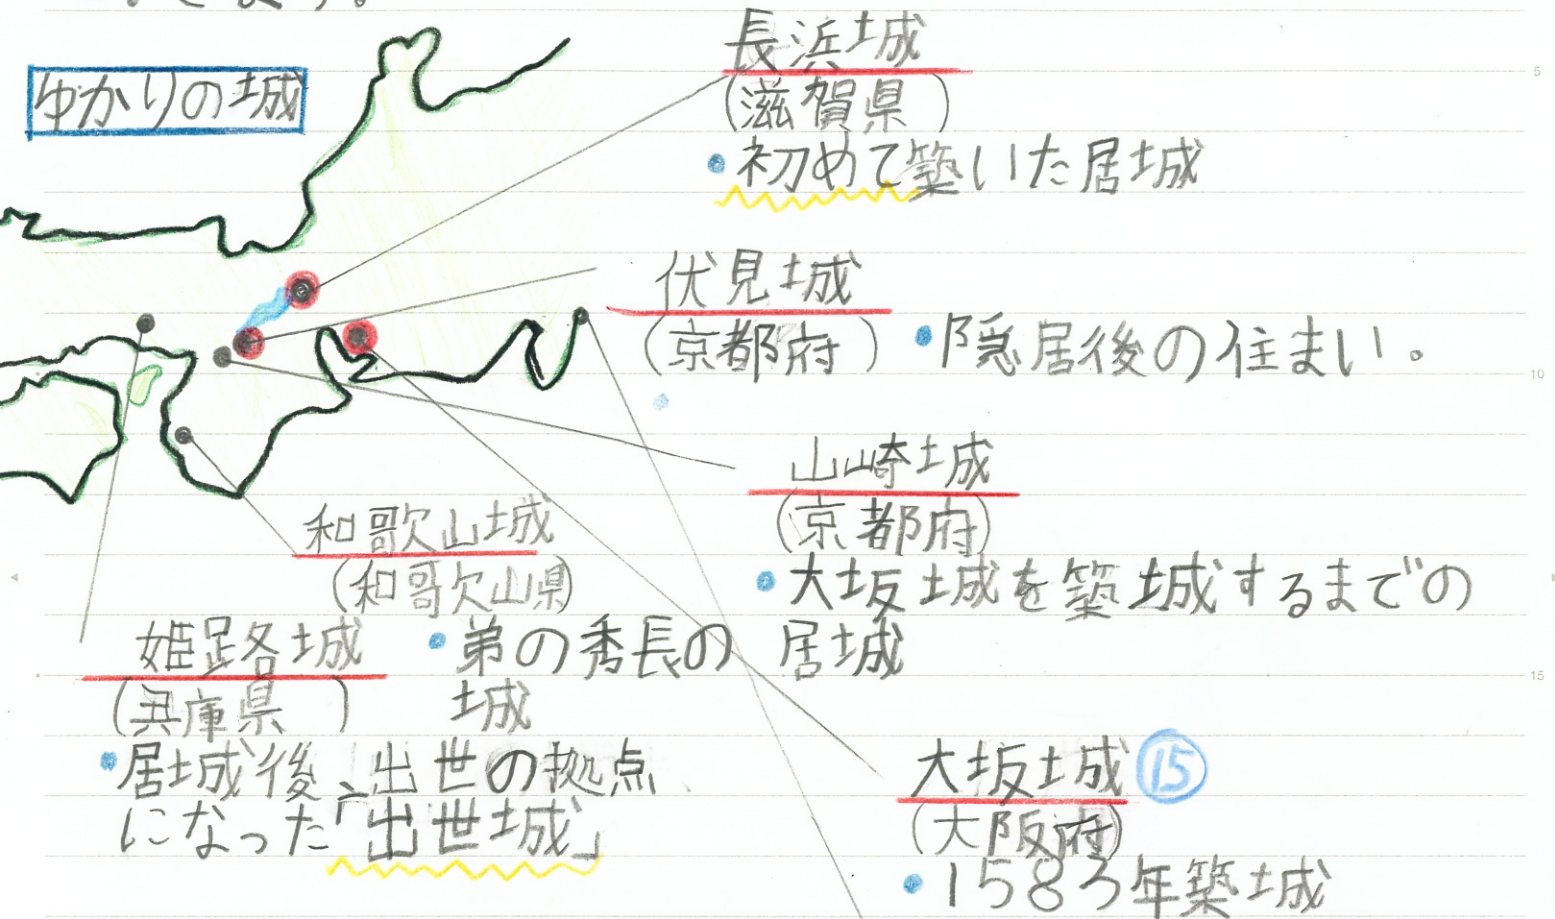 ゆかりの城
長浜城
(滋賀県)
・初めて築いた居城
伏見城
(京都府)
・隠居後の住まい。
山崎城
(京都府)
・大坂城を築城するまでの
居城
和歌山城
(和歌山県)
・弟の秀長の
城
姫路城
(兵庫県)
・居城後、出世の拠点
になった「出世城」
大坂城⑮
(大阪府)
・1583年築城
5
10
15